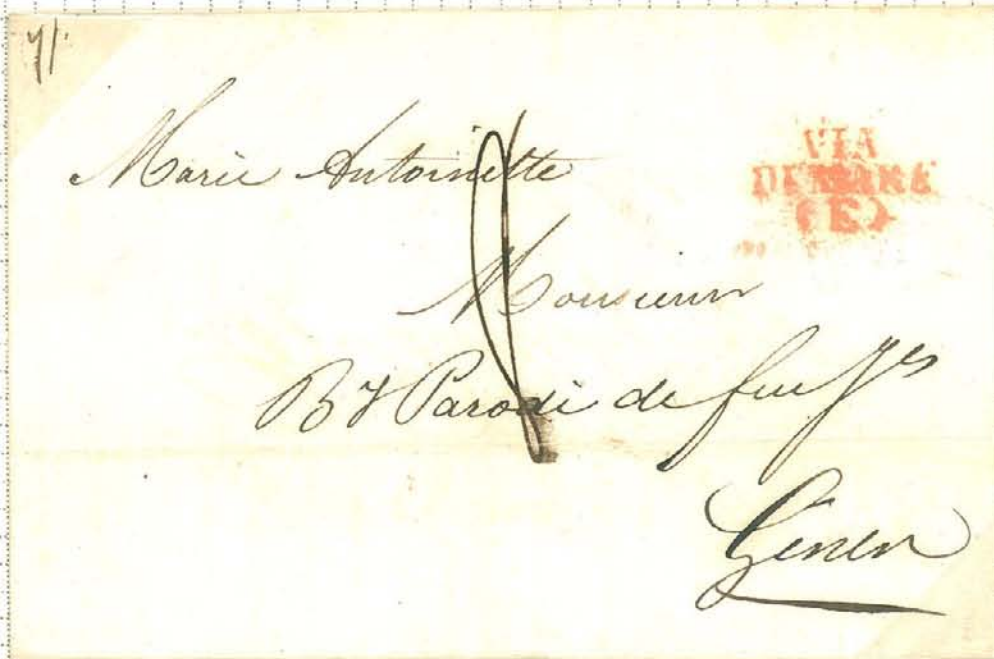 Marie Antoinette
VIA
DI MARE
(E)
Monsieur
B Parodi de feu
Genes